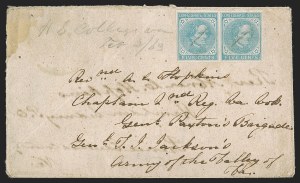 Feb 3/63
FIVE CENTS FIVE CENTS
Revnd A. C. Hopkins
Chaplain 2nd Reg. Va Vols
Genl Paxton's Brigade
Genl T. J. Jackson's
Army of the Valley of
Va.